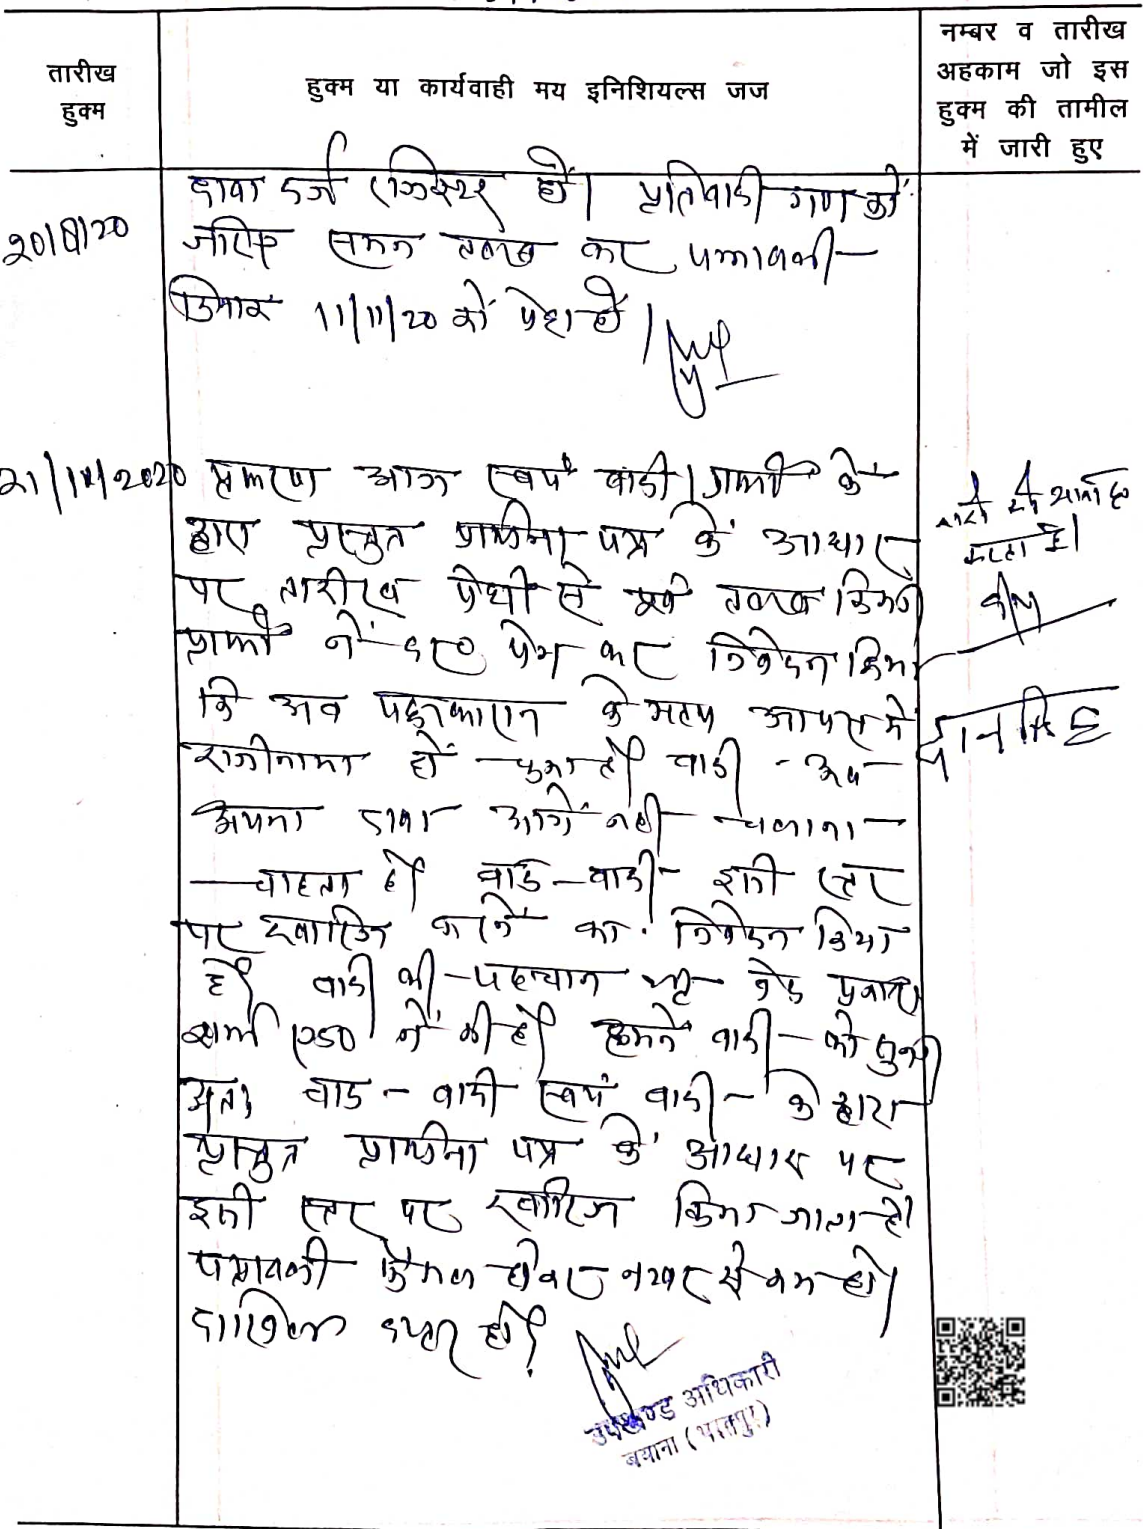 तारीख
हुक्म
हुक्म या कार्यवाही मय इनिशियल्स जज
नम्बर व तारीख
अहकाम जो इस
हुक्म की तामील
में जारी हुए
20/8/20
दावा दर्ज रजिस्टर हो। प्रतिवादी गण को
जरिए समन तलब कर पत्रावली
दिनांक 11/11/20 को पेश हो।
21/10/2020
प्रकरण आज स्वयं वादी/प्रार्थी के
द्वारा प्रस्तुत प्रार्थना पत्र के आधार
पर तारीख पेशी से पूर्व तलब किया
प्रार्थी ने पेश कर निवेदन किया
कि अब पक्षकारान के मध्य आपस में
राजीनामा हो चुका है वादी अब
अपना दावा आगे नही चलाना
चाहता है वाद-वादी इसी स्तर
पर खारिज करने का निवेदन किया
है वादी की पहचान
शर्मा ने की है हमने वादी को सुना
अतः वाद-वादी स्वयं वादी के द्वारा
प्रस्तुत प्रार्थना पत्र के आधार पर
इसी स्तर पर खारिज किया जाता है।
पत्रावली फैसल होकर नम्बर से कम हो।
दाखिल दफ्तर हो।
उपखण्ड अधिकारी
बयाना (भरतपुर)